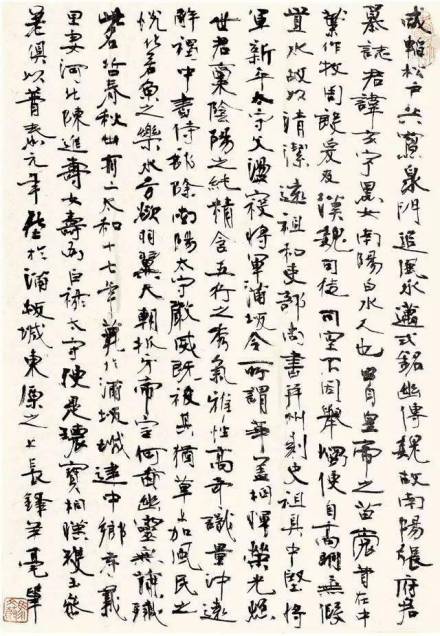 咸輟松戶共寢泉門追風永邁式銘幽傳魏故南陽張府君
墓誌君諱玄字黑女南陽白水人也出自皇帝之苗裔昔在中
葉作牧周殷爰及漢魏司徒司空不因舉燭便自高明無假
置水故以清潔遠祖和吏部尚書并州刺史祖具中堅將
軍新平太守父盪寇將軍蒲坂令所謂華蓋相暉榮光照
世君稟陰陽之純精含五行之秀氣雅性高奇識量沖遠
解褐中書侍郎除南陽太守嚴威既被其猶草加風民之
悅化若魚之樂水方欲羽翼天朝抓牙帝室何啚幽靈無簡殲
此名哲春秋卅有二太和十七年薨於蒲坂城建中鄉孝義
里妻河北陳進壽女壽為巨祿太守便是瓌寶相暎瓊玉參
差俱以普泰元年葬於蒲坂城東原之上長鋒羊毫筆